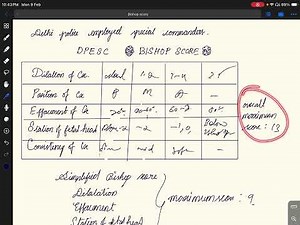 10:43 PM Mon 9 Feb
Bishop score
Delhi police employed special commandos.
DPESC BISHOP SCORE
Dilation of Cx
Position of Cx P M A –
Effacement of Cx
Station of fetal head -2 -1,0 Below
Consistency of Cx Firm med soft –
overall
maximum
score : 13
Simplified Bishop score
Dilatation
Effacement
Station of fetal head
maximum score : 9